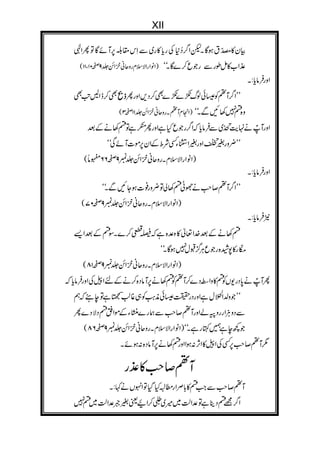 XII
بیان کا مصداق ہوگا۔ لیکن اگر دنیا کی ریا کاری سے اس مقابلہ پر آئے گا تو پھر الٰہی
عذاب کامل طور سے رجوع کرے گا۔‘‘ (انوار الاسلام۔ روحانی خزائن جلد ۹ صفحہ
اور فرمایا:۔
’’اگر آتھم کو عیسائی لوگ ٹکڑے ٹکڑے بھی کر دیں اور ذبح بھی کر ڈالیں تب بھی
وہ قسم نہیں کھائیں گے۔‘‘ (انجام آتھم۔ روحانی خزائن جلد ۱۱ صفحہ ۳)
اور آپ نے نہایت تحدی سے فرمایا کہ اگر رجوع کیا ہے اور پھر منکر ہے تو قسم کھانے کے بعد
’’ضرور بغیر تخلف اور بغیر استثناء کسی شرط کے اُن پر موت آئے گی‘‘
(انوار الاسلام۔ روحانی خزائن جلد نمبر ۹ صفحہ ۶۶ مفہوماً)
اور فرمایا۔
’’اگر آتھم صاحب نے جھوٹی قسم کھا لی تو ضرور فوت ہو جائیں گے۔‘‘
(انوار الاسلام۔ روحانی خزائن جلد نمبر ۹ صفحہ ۷۰)
نیز فرمایا
’’قسم کھانے کے بعد خدا تعالیٰ کا وعدہ ہے کہ فیصلہ قطعی کرے۔ سو قسم کے بعد ایسے
مکار کا پوشیدہ رجوع ہرگز قبول نہیں ہوگا۔‘‘
(انوار الاسلام۔ روحانی خزائن جلد نمبر ۹ صفحہ ۸۱)
پھر آپ نے پادریوں کو قسم کا واسطہ دے کر آتھم کو قسم کھانے پر آمادہ کرنے کے لئے اپیل کی اور فرمایا کہ
’’جو ولد الحلال ہے اور درحقیقت عیسائی مذہب کو ہی غالب سمجھتا ہے تو چاہئے کہ ہم
سے دو ہزار روپیہ لے اور آتھم صاحب سے ہمارے منشاء کے موافق قسم دلا دے پھر
جو کچھ چاہے ہمیں کہتا رہے۔‘‘ (انوار الاسلام۔ روحانی خزائن جلد نمبر ۹ صفحہ ۸۶)
مگر آتھم صاحب پر کسی اپیل کا اثر نہ ہوا اور قسم کھانے پر آمادہ نہ ہوئے۔
آتھم صاحب کا عذر
آتھم صاحب سے جب قسم کا باصرار مطالبہ کیا گیا تو انہوں نے کہا:۔
اگر مجھے قسم دینا ہے تو عدالت میں میری طلبی کرائیے یعنی بغیر جبر عدالت میں قسم نہیں